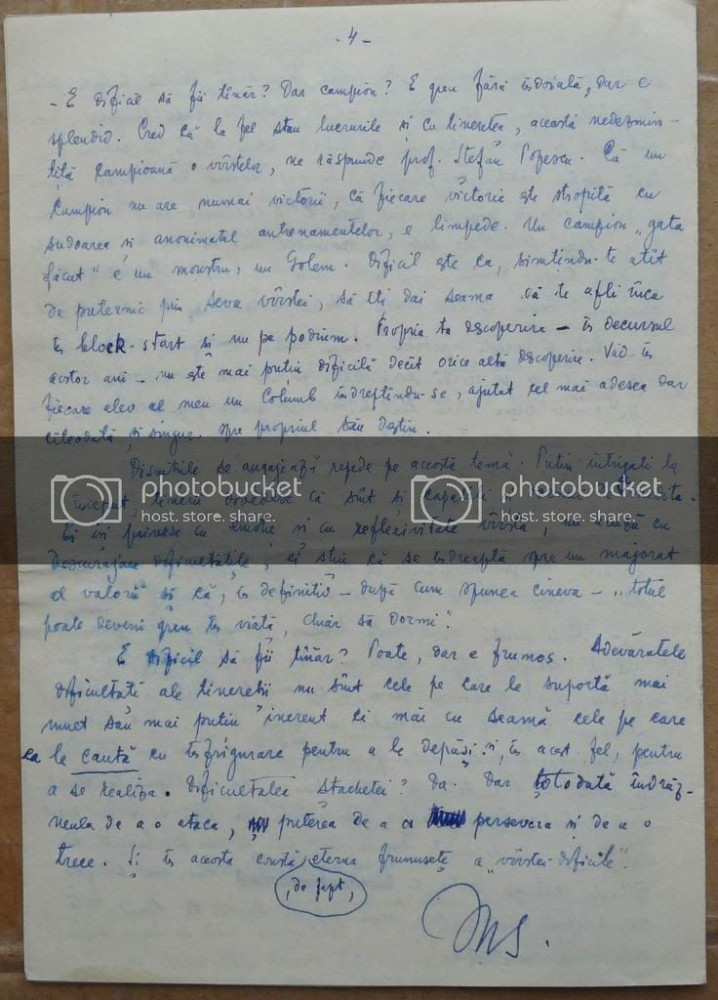 - 4 -
- E dificil să fii tînăr? Dar campion? E greu fără îndoială, dar e
splendid. Cred că la fel stau lucrurile și cu tinerețea, această nedezmin-
țită campioană a vîrstelor, ne răspunde prof. Ștefan Popescu. Că un
campion nu are numai victorii, că fiecare victorie este stropită cu
sudoarea și anonimatul antrenamentelor, e limpede. Un campion „gata
făcut" e un monstru, un Golem. Dificil este ca, simțindu-te atît
de puternic prin seva vîrstei, să îți dai seama că te afli încă
în block-start și nu pe podium. Propria ta descoperire - în decursul
acestor ani - nu este mai puțin dificilă decît orice altă descoperire. Văd în
fiecare elev al meu un Columb îndreptîndu-se, ajutat cel mai adesea dar
cîteodată și singur, spre propriul său destin.
Discuțiile se angajează repede pe această temă. Puțin intrigați la
început, tinerii dovedesc că sînt și capabili
Ei își privesc cu emoție și cu reflexivitate vîrsta, nu acuză cu
descurajare dificultățile, ei știu că se îndreaptă spre un majorat
al valorii și că, în definitiv - după cum spunea cineva - „totul
poate deveni greu în viață, chiar să dormi".
E dificil să fii tînăr? Poate, dar e frumos. Adevăratele
dificultăți ale tinereții nu sînt cele pe care le suportă mai
mult sau mai puțin inerent ci mai cu seamă cele pe care
ea le caută cu înfrigurare pentru a le depăși și, în acest fel, pentru
a se realiza. Dificultatea ștachetei? Da. Dar totodată îndrăz-
neala de a o ataca, puterea de a persevera și de a o
trece. Și în aceasta constă, eterna frumusețe a „vîrstei dificile".
, de fapt,
photobucket
host. store. share.
photobucket
host. store. share.